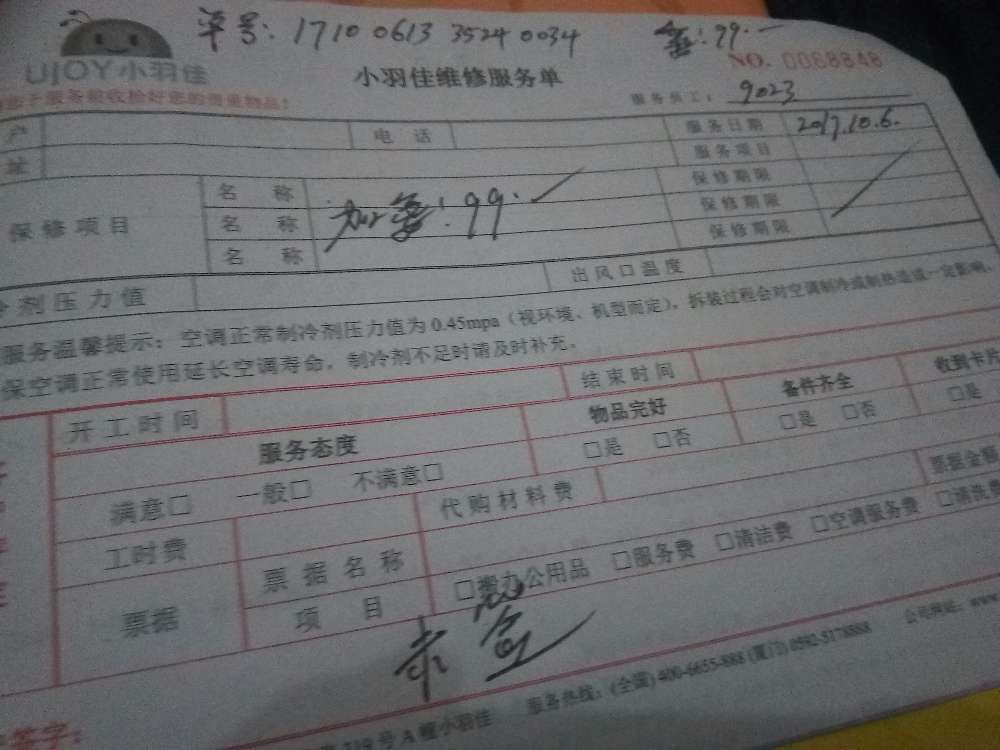 单号: 1710 0613 3524 0034
:99.
UJOY小羽佳
小羽佳维修服务单
NO. 0088848
服务员工: 9023
户
电 话
服务日期 2017.10.6.
址
服务项目
保修项目
名 称
加 :99.
保修期限
名 称
保修期限
名 称
保修期限
剂压力值
出风口温度
服务温馨提示：空调正常制冷剂压力值为0.45mpa（视环境、机型而定），拆装过程会对空调制冷或制热造成一定影响，
保空调正常使用延长空调寿命，制冷剂不足时请及时补充。
开工时间
结束时间
服务态度
物品完好
备件齐全
收到卡片
满意□ 一般□ 不满意□
□是 □否
□是 □否
□是
工时费
代购材料费
票据
票据名称
票据金额
项 目
□搬办公用品 □服务费 □清洁费 □空调服务费 □清洗费
签字:
319号A幢小羽佳 服务热线：(全国) 400-6655-888 (厦门) 0592-5178888 公司网址：www